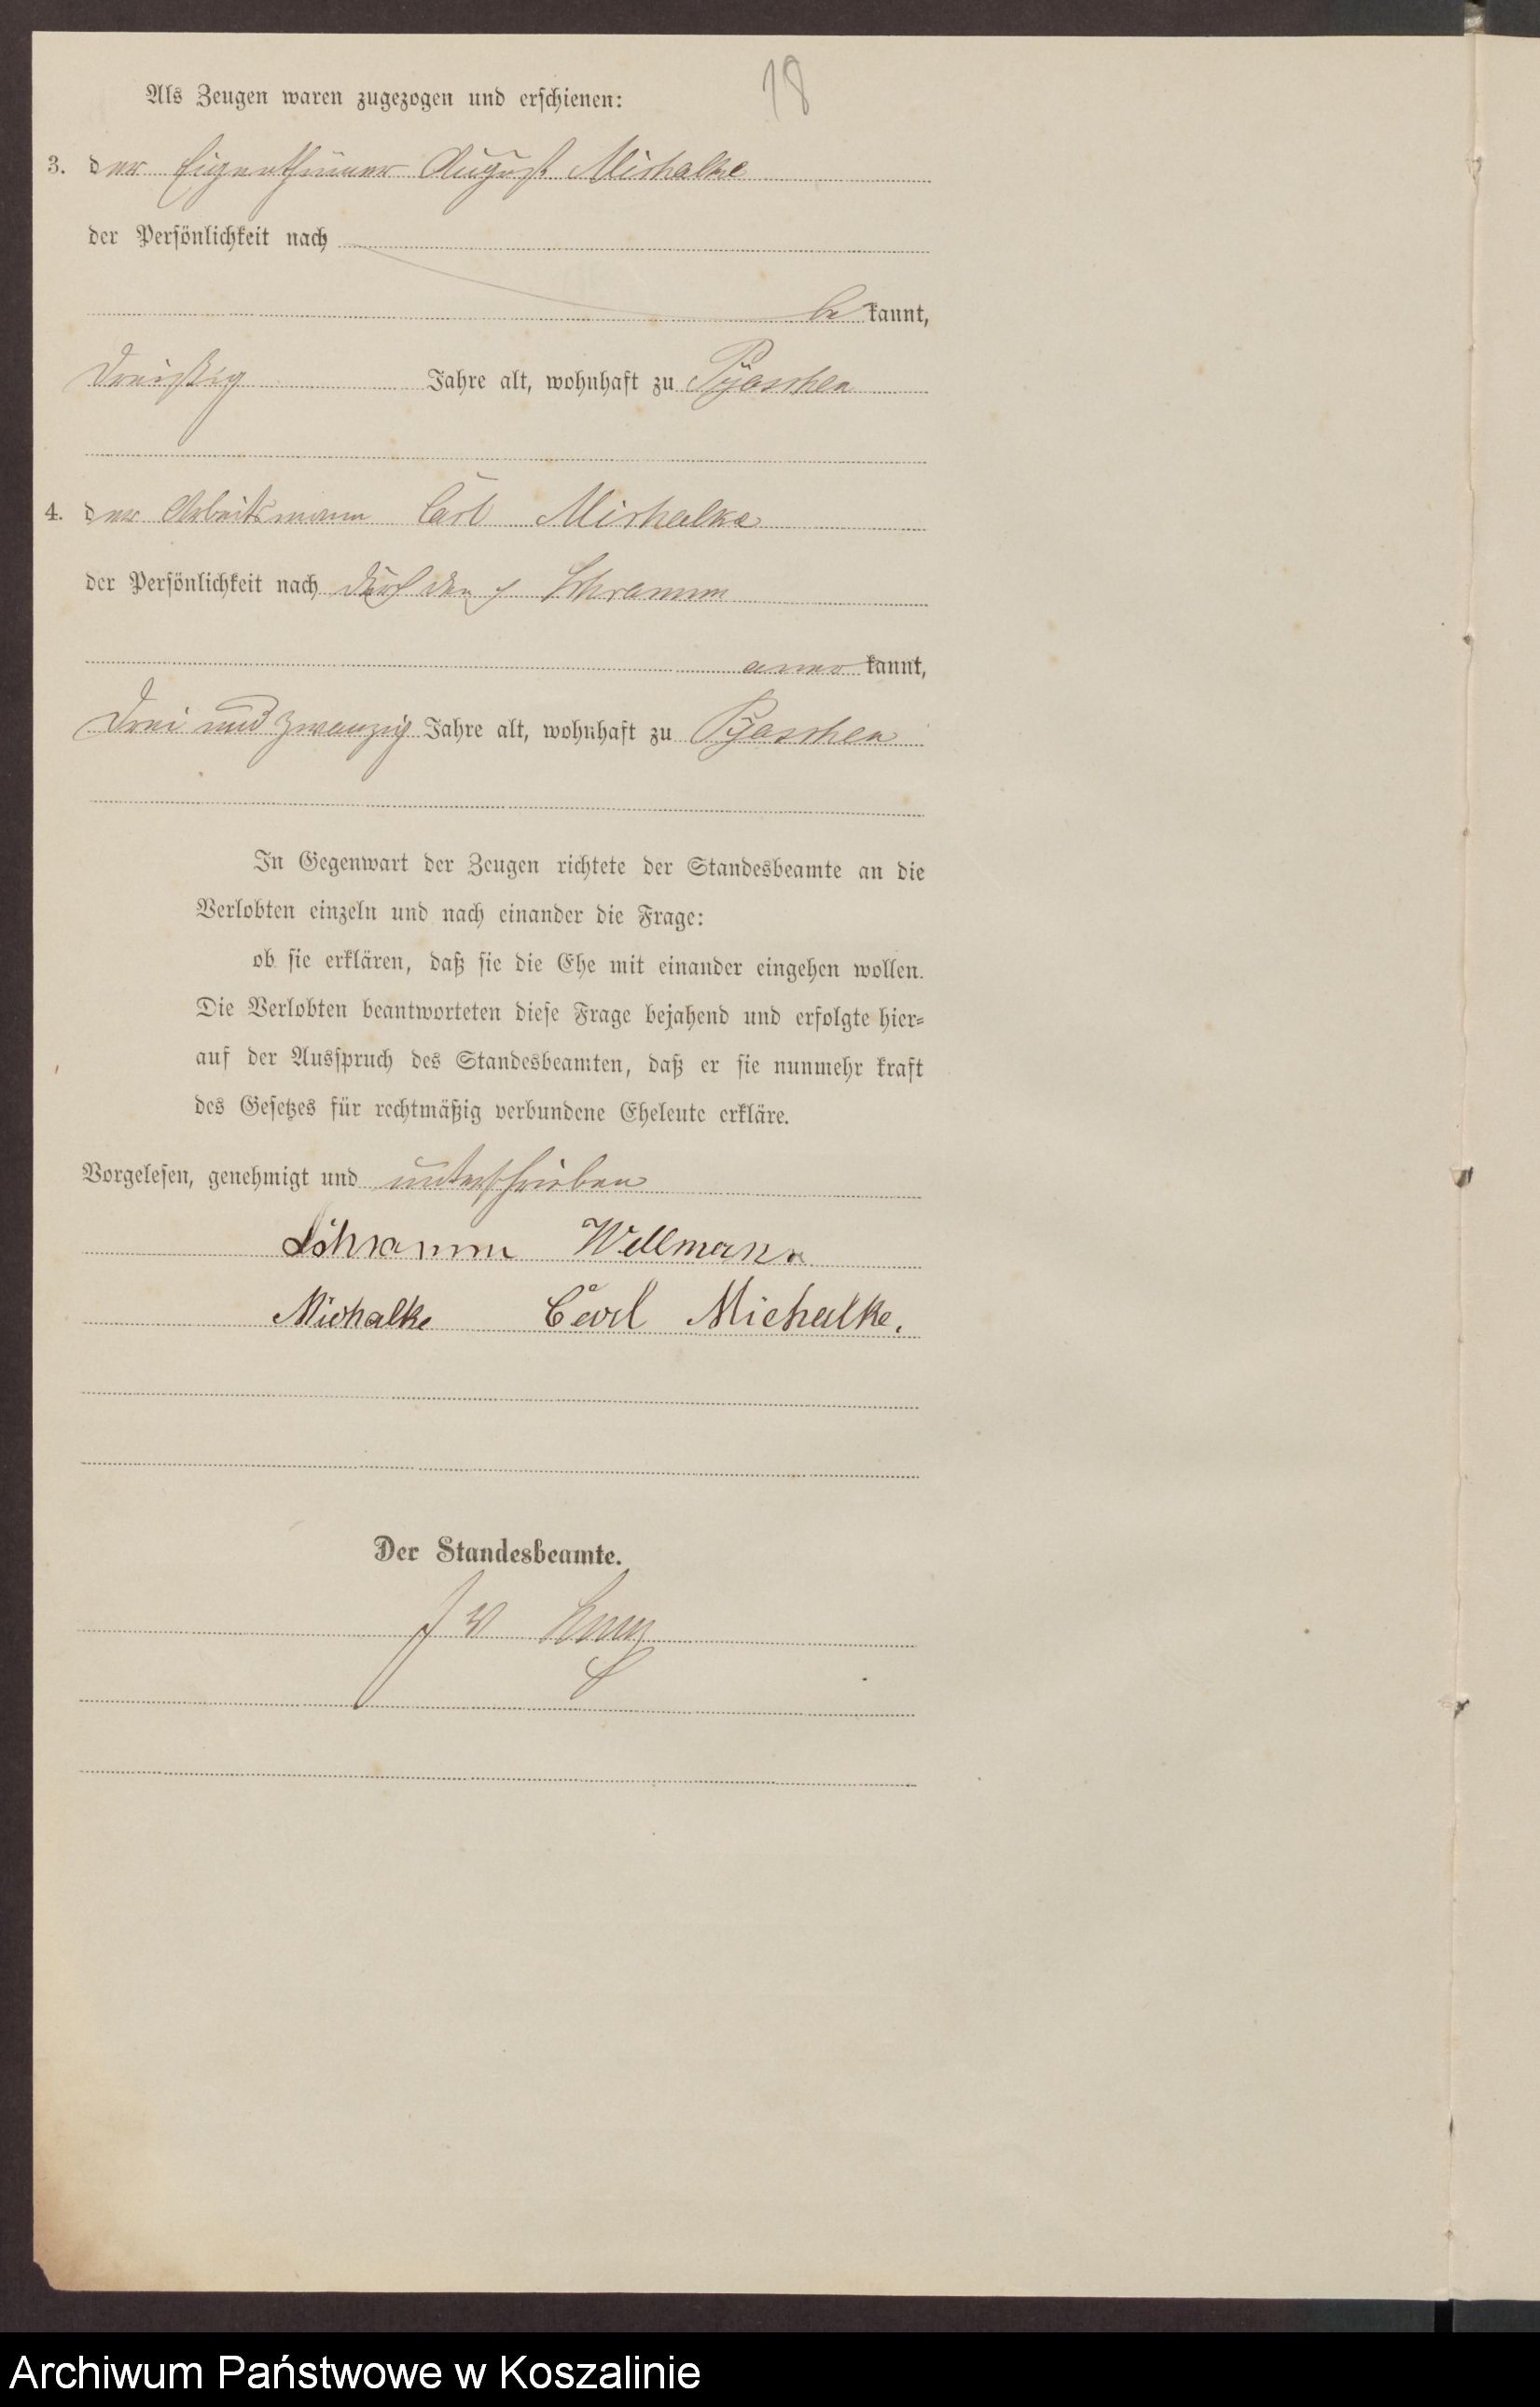 18
Als Zeugen waren zugezogen und erschienen:
3. der Eigenthümer August Michalke
der Persönlichkeit nach
be kannt,
dreißig Jahre alt, wohnhaft zu Pyaschen
4. der Arbeitsmann Carl Michalke
der Persönlichkeit nach durch den p Schramm
aner kannt,
drei und zwanzig Jahre alt, wohnhaft zu Pyaschen
In Gegenwart der Zeugen richtete der Standesbeamte an die
Verlobten einzeln und nach einander die Frage:
ob sie erklären, daß sie die Ehe mit einander eingehen wollen.
Die Verlobten beantworteten diese Frage bejahend und erfolgte hier-
auf der Ausspruch des Standesbeamten, daß er sie nunmehr kraft
des Gesetzes für rechtmäßig verbundene Eheleute erkläre.
Vorgelesen, genehmigt und unterschrieben
Schramm Wellmann
Michalke Carl Michalke.
Der Standesbeamte.
Archiwum Państwowe w Koszalinie